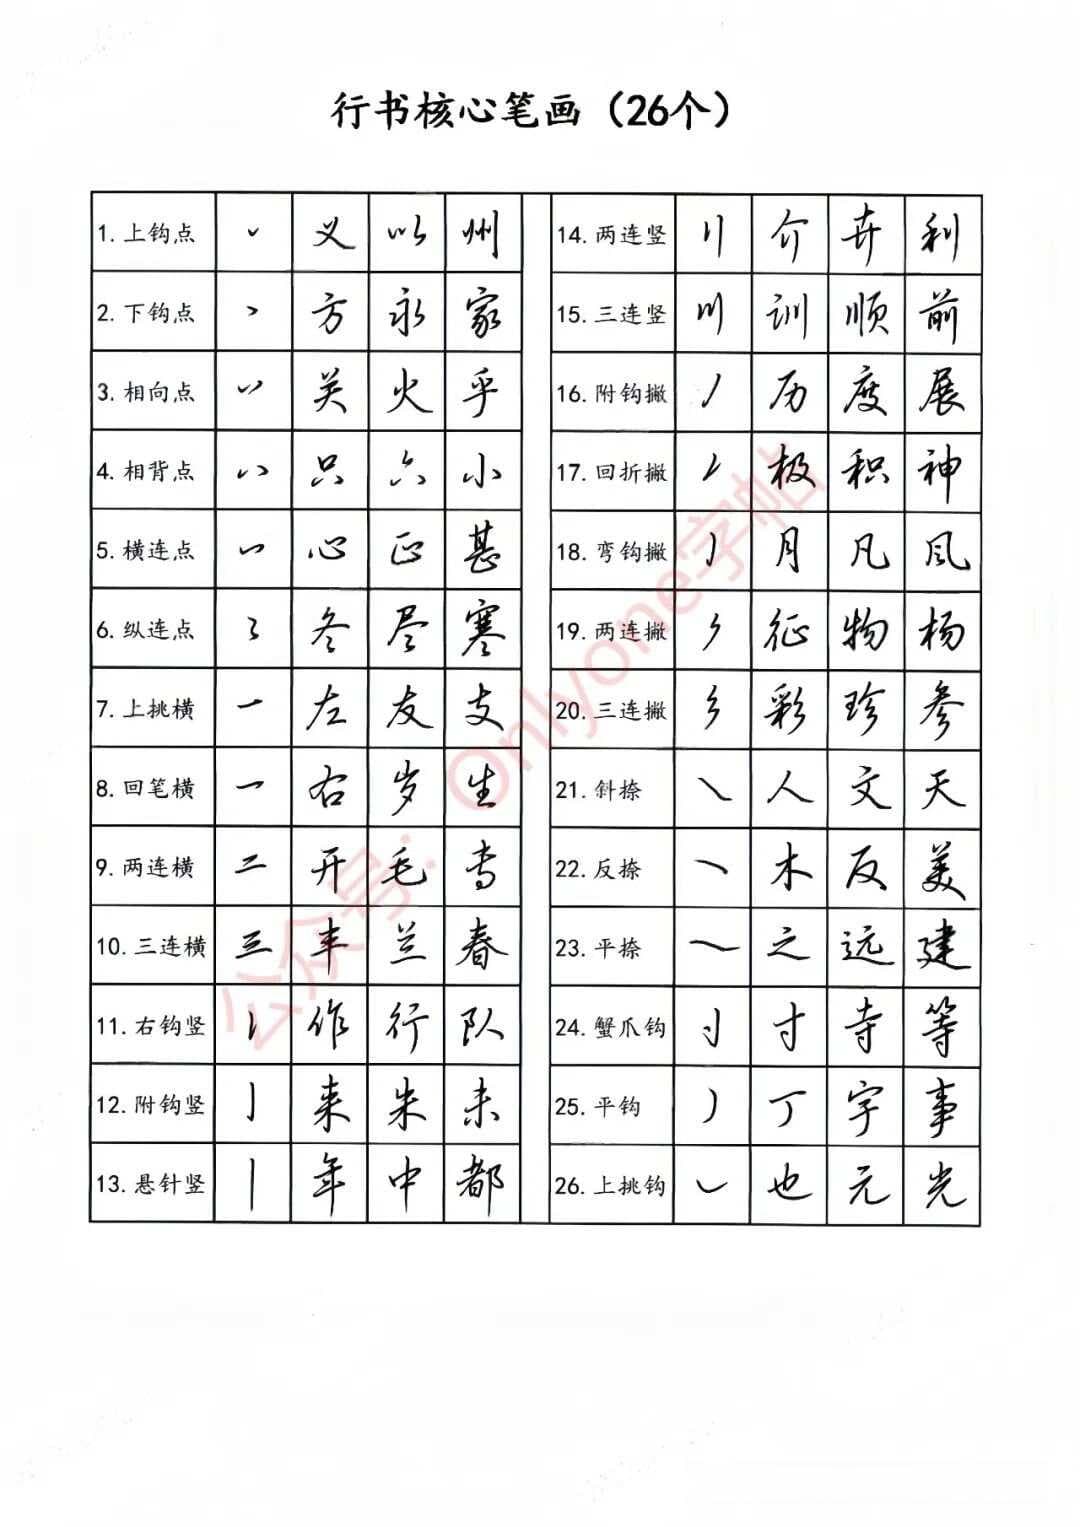 行书核心笔画（26个）
1.上钩点 丷 义 以 州
2.下钩点 方 永 家
3.相向点 关 火 乎
4.相背点 只 六 小
5.横连点 心 正 甚
6.纵连点 冬 尽 寒
7.上挑横 左 友 支
8.回笔横 右 岁 生
9.两连横 开 毛 专
10.三连横 丰 兰 春
11.右钩竖 作 行 队
12.附钩竖 来 朱 未
13.悬针竖 年 中 都
14.两连竖 介 卉 利
15.三连竖 训 顺 前
16.附钩撇 历 度 展
17.回折撇 极 积 神
18.弯钩撇 月 凡 风
19.两连撇 征 物 杨
20.三连撇 彩 珍 参
21.斜捺 人 文 天
22.反捺 木 反 美
23.平捺 之 远 建
24.蟹爪钩 寸 寺 等
25.平钩 丁 字 事
26.上挑钩 也 元 光
公众号：Onlyone字帖